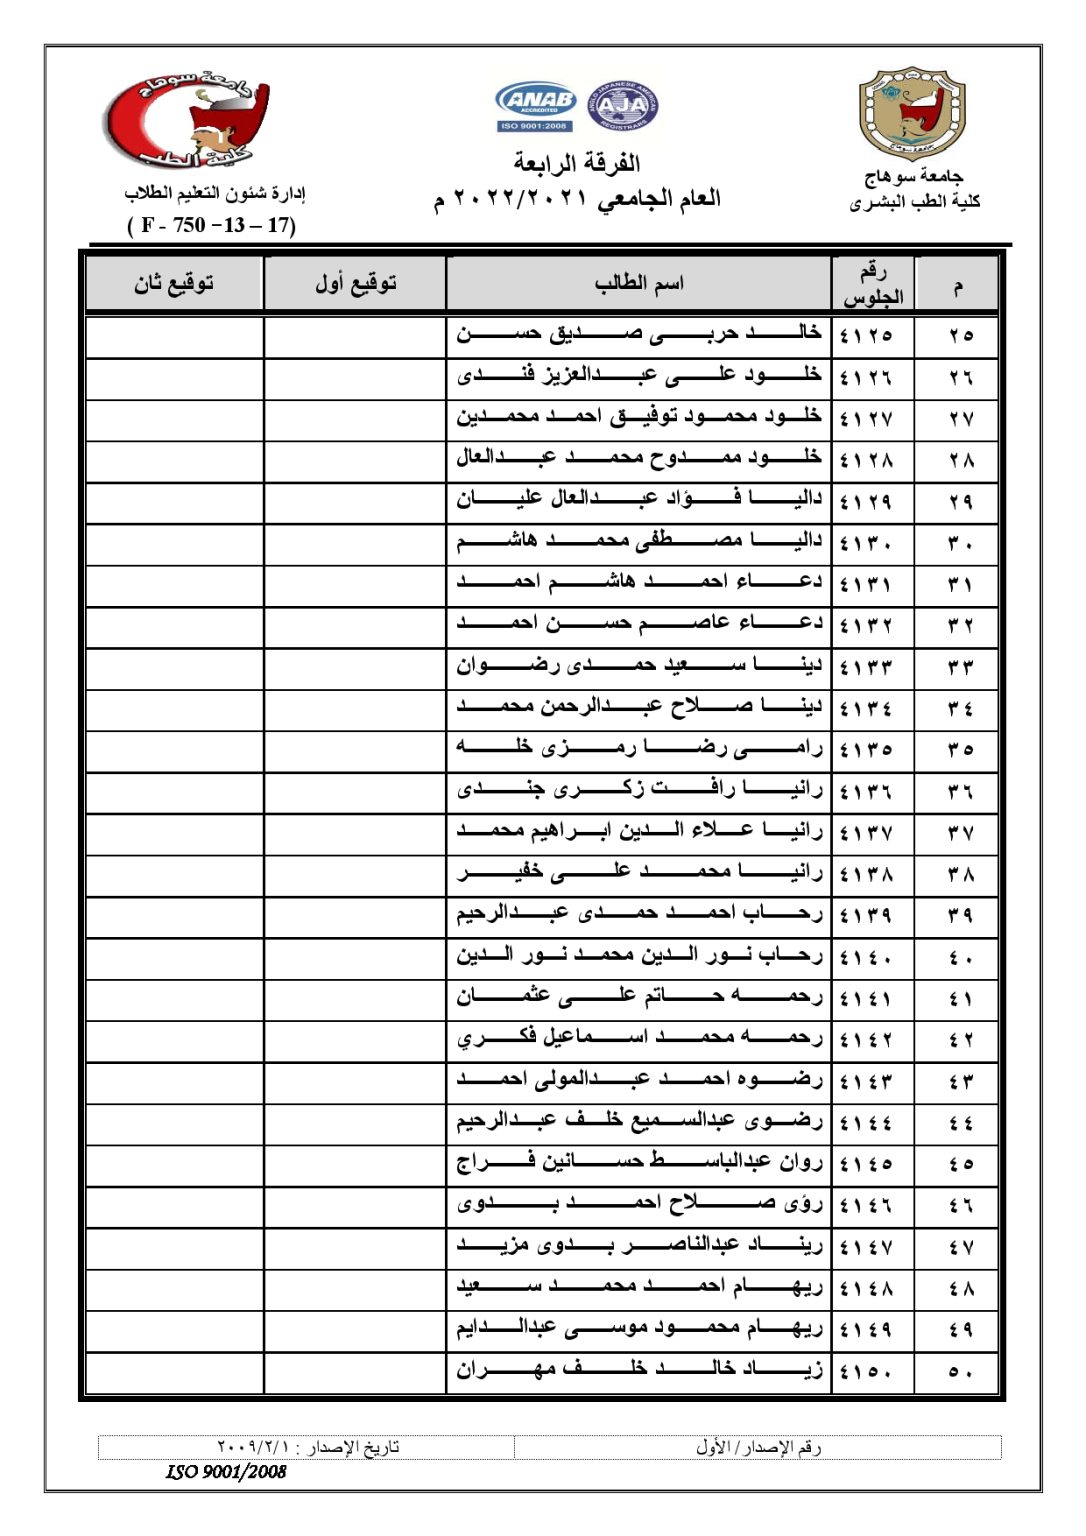 جامعة سوهاج
كلية الطب
ANAB
ACCREDITED
ISO 9001:2008
ANGLO JAPANESE AMERICAN
AJA
REGISTRARS
جامعة سوهاج
جامعة سوهاج
كلية الطب البشرى
الفرقة الرابعة
العام الجامعي ٢٠٢٢/٢٠٢١ م
إدارة شئون التعليم الطلاب
( F - 750 –13 – 17)
م رقم الجلوس اسم الطالب توقيع أول توقيع ثان
٢٥ ٤١٢٥ خالد حربى صديق حسن
٢٦ ٤١٢٦ خلود على عبدالعزيز فندى
٢٧ ٤١٢٧ خلود محمود توفيق احمد محمدين
٢٨ ٤١٢٨ خلود ممدوح محمد عبدالعال
٢٩ ٤١٢٩ داليا فؤاد عبدالعال عليان
٣٠ ٤١٣٠ داليا مصطفى محمد هاشم
٣١ ٤١٣١ دعاء احمد هاشم احمد
٣٢ ٤١٣٢ دعاء عاصم حسن احمد
٣٣ ٤١٣٣ دينا سعيد حمدى رضوان
٣٤ ٤١٣٤ دينا صلاح عبدالرحمن محمد
٣٥ ٤١٣٥ رامى رضا رمزى خله
٣٦ ٤١٣٦ رانيا رافت زكرى جندى
٣٧ ٤١٣٧ رانيا علاء الدين ابراهيم محمد
٣٨ ٤١٣٨ رانيا محمد على خفير
٣٩ ٤١٣٩ رحاب احمد حمدى عبدالرحيم
٤٠ ٤١٤٠ رحاب نور الدين محمد نور الدين
٤١ ٤١٤١ رحمه حاتم على عثمان
٤٢ ٤١٤٢ رحمه محمد اسماعيل فكري
٤٣ ٤١٤٣ رضوه احمد عبدالمولى احمد
٤٤ ٤١٤٤ رضوى عبدالسميع خلف عبدالرحيم
٤٥ ٤١٤٥ روان عبدالباسط حسانين فراج
٤٦ ٤١٤٦ رؤى صلاح احمد بدوى
٤٧ ٤١٤٧ ريناد عبدالناصر بدوى مزيد
٤٨ ٤١٤٨ ريهام احمد محمد سعيد
٤٩ ٤١٤٩ ريهام محمود موسى عبدالدايم
٥٠ ٤١٥٠ زياد خالد خلف مهران
رقم الإصدار/ الأول تاريخ الإصدار : ٢٠٠٩/٢/١
ISO 9001/2008